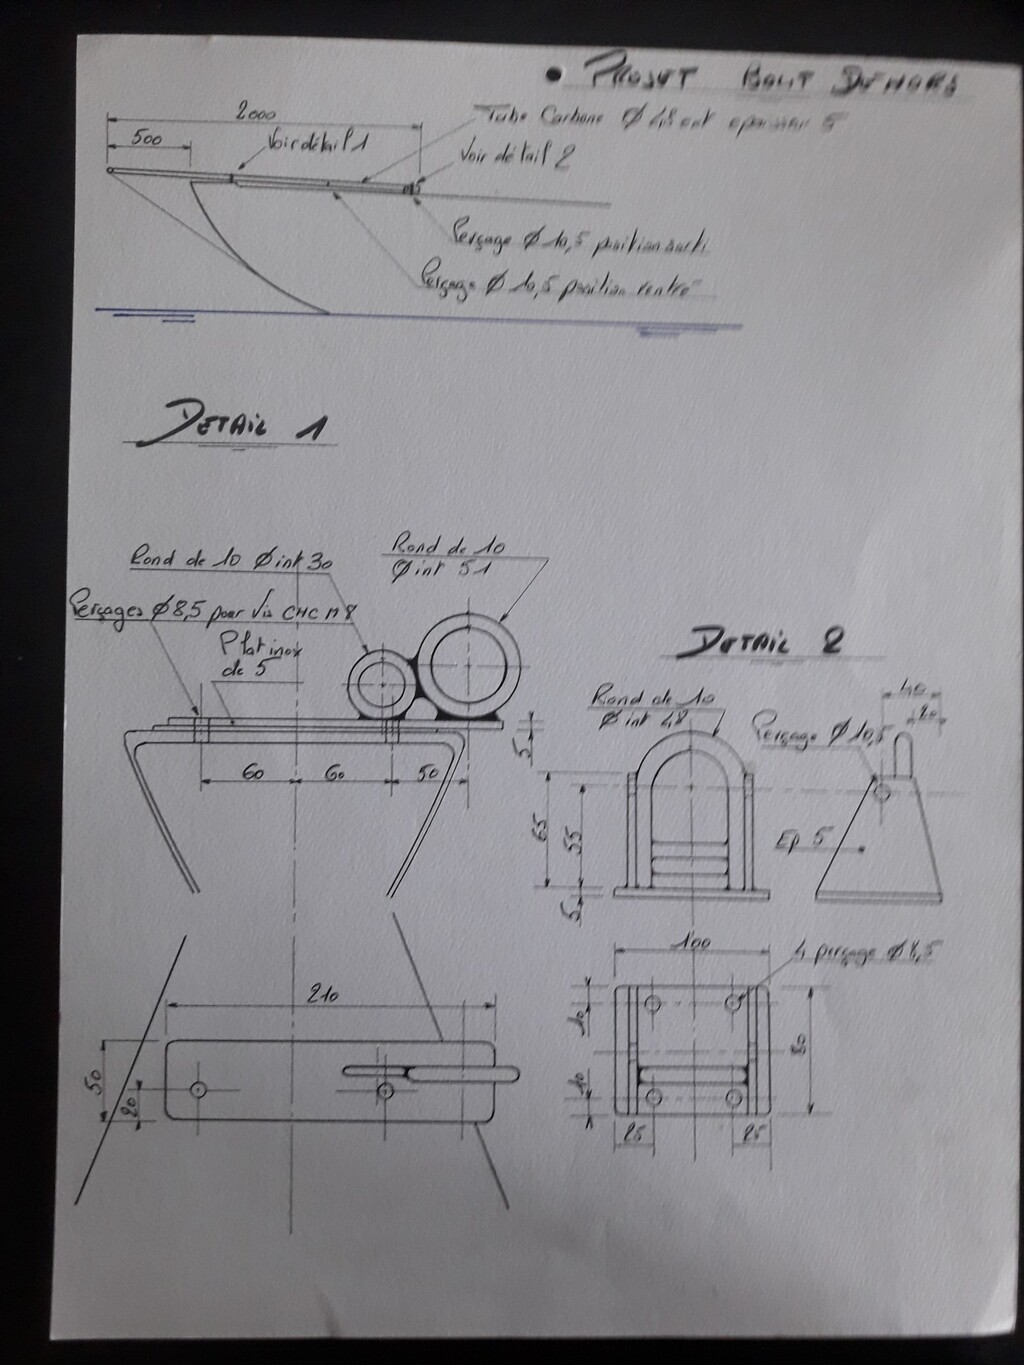 • PROJET BOUT DEHORS
2000
Tube Carbone Ø 48 ext épaisseur 5
500
Voir détail 1
Voir détail 2
Perçage Ø 10,5 position sorti
Perçage Ø 10,5 position rentré
DETAIL 1
Rond de 10 Ø int 30
Rond de 10
Ø int 51
Perçages Ø 8,5 pour Vis CHC M8
Plat inox
de 5
5
60
60
50
210
50
20
DETAIL 2
Rond de 10
Ø int 48
40
20
Perçage Ø 10,5
65
55
Ep 5
5
100
4 perçage Ø 8,5
10
80
10
25
25